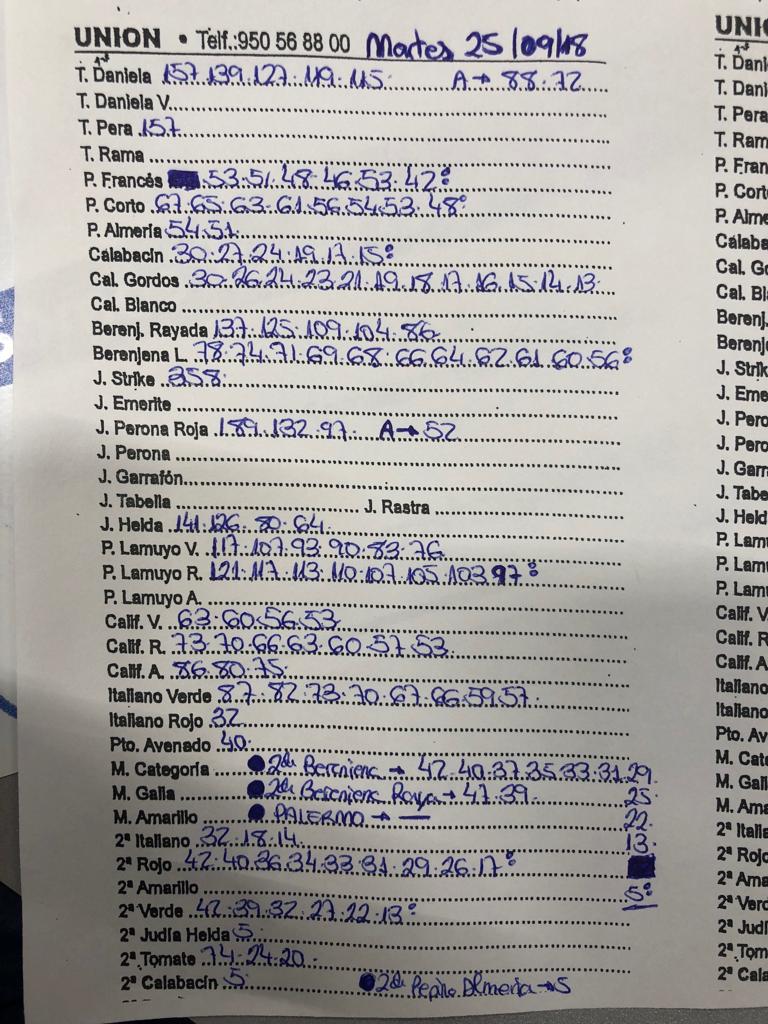 UNION • Telf.:950 56 88 00 Martes 25/09/18
T. Daniela 157.139.127.119.115. A→ 88.72
T. Daniela V.
T. Pera 157
T. Rama
P. Francés .53.51.48.46.53.42º
P. Corto 67.65.63.61.56.54.53.48º
P. Almería 54.51
Calabacín 30.27.24.19.17.15º
Cal. Gordos 30.26.24.23.21.19.18.17.16.15.14.13.
Cal. Blanco
Berenj. Rayada 137.125.109.104.86
Berenjena L. 78.74.71.69.68.66.64.62.61.60.56º
J. Strike 258.
J. Emerite
J. Perona Roja 189.132.97. A→ 52
J. Perona
J. Garrafón
J. Tabella J. Rastra
J. Helda 141.126.80.64.
P. Lamuyo V. 117.107.93.90.83.76
P. Lamuyo R. 121.117.113.110.107.105.103.97º
P. Lamuyo A.
Calif. V. 63.60.56.53
Calif. R. 73.70.66.63.60.57.53
Calif. A. 86.80.75.
Italiano Verde 87.82.73.70.67.66.59.57.
Italiano Rojo 32
Pto. Avenado 40.
M. Categoría ● 2da Berenjena → 42.40.37.35.33.31.29
M. Galia ● 2da Berenjena Raya → 47.39. 25
M. Amarillo ● PALERMO → — 22
2ª Italiano 32.18.14 13
2ª Rojo 42.40.36.34.33.31.29.26.17º
2ª Amarillo 5º
2ª Verde 42.39.32.27.22.13º
2ª Judía Helda 5
2ª Tomate 74.24.20.
2ª Calabacín 5 ● 2da Pepino Almeria → 5
UNIO
T. Dani
T. Dani
T. Pera
T. Ram
P. Fran
P. Cort
P. Alme
Calaba
Cal. Go
Cal. Bl
Berenj.
Berenje
J. Strik
J. Eme
J. Pero
J. Pero
J. Garr
J. Tabe
J. Held
P. Lam
P. Lam
P. Lam
Calif. V
Calif. R
Calif. A
Italiano
Italiano
Pto. Av
M. Cate
M. Gali
M. Ama
2ª Italia
2ª Rojo
2ª Ama
2ª Verd
2ª Judí
2ª Tom
2ª Cala